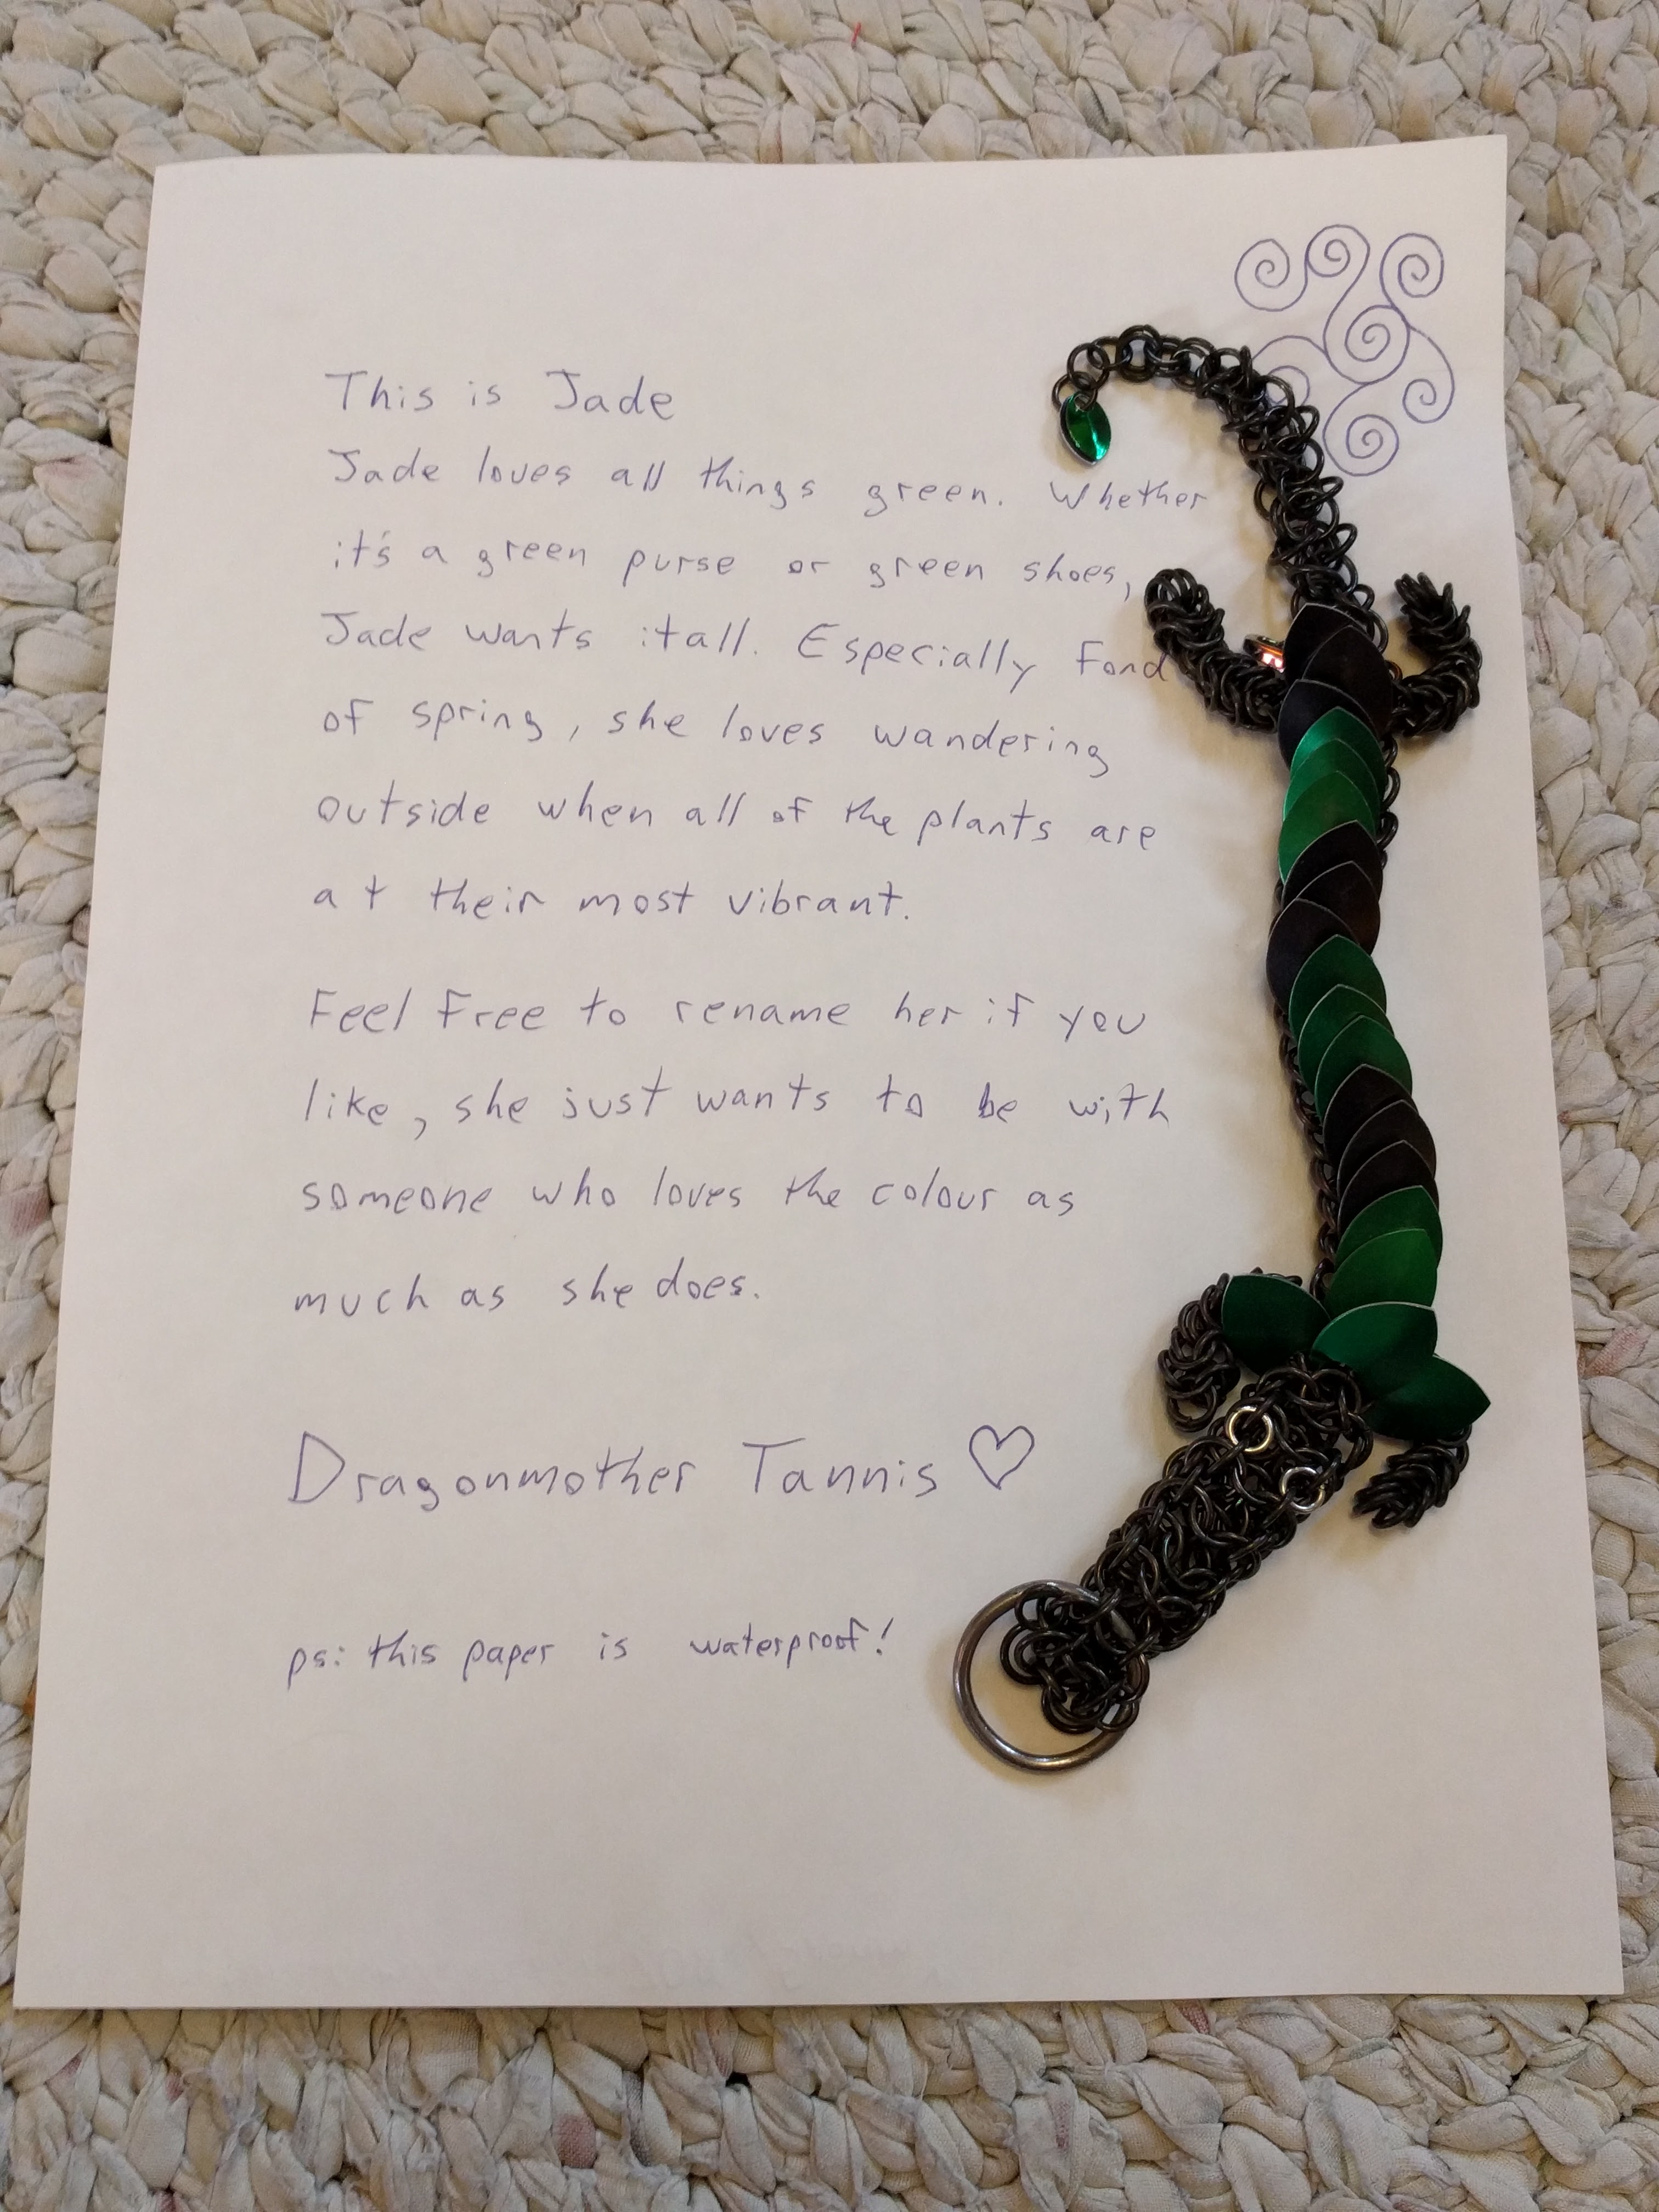 This is Jade
Jade loves all things green. Whether
it's a green purse or green shoes,
Jade wants it all. Especially fond
of spring, she loves wandering
outside when all of the plants are
at their most vibrant.
Feel free to rename her if you
like, she just wants to be with
someone who loves the colour as
much as she does.
Dragonmother Tannis ♡
ps: this paper is waterproof!